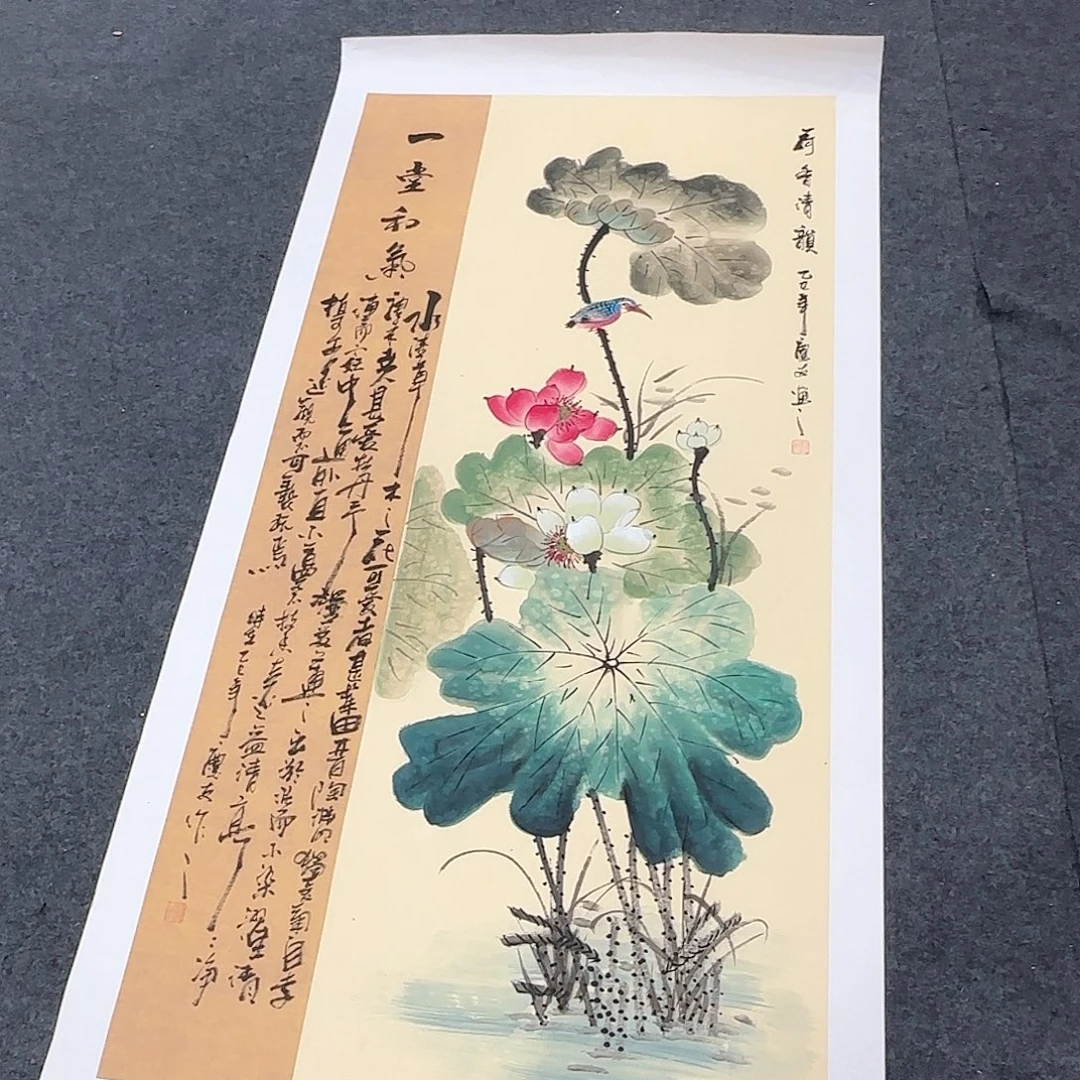 荷香清韻 乙巳年廣文画
一和氣
水陸草木之花可愛者甚蕃晋陶渊明獨愛菊自李
唐来甚愛牡丹予獨愛蓮之出淤泥而不染濯清
漣而不妖中通外直不蔓不枝香遠益清亭亭净
植可遠觀而不可褻玩焉 時在乙巳年 廣文作